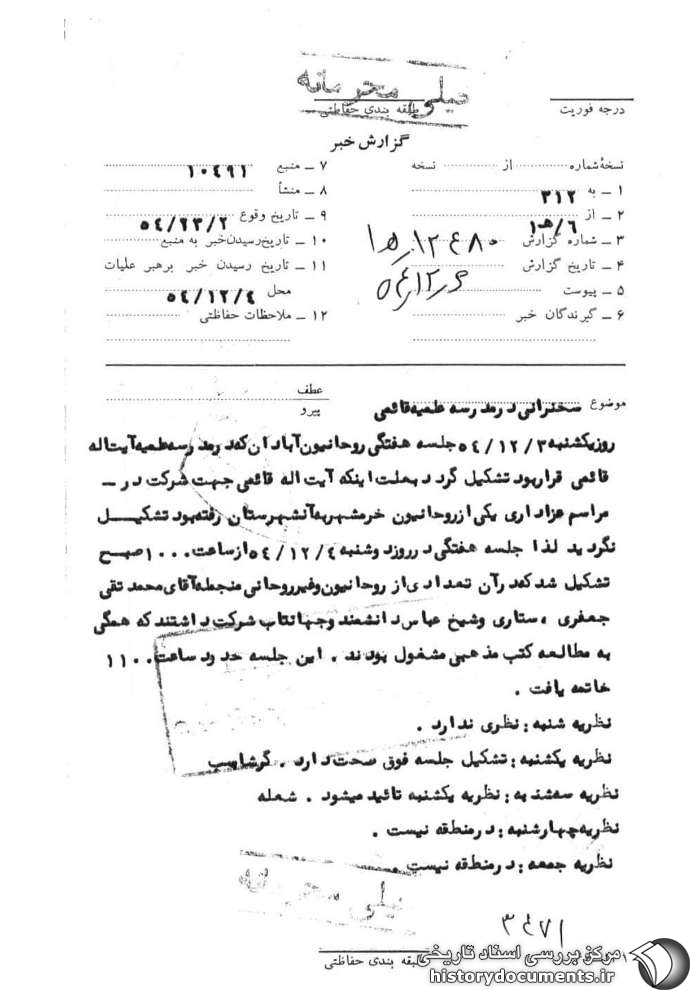 خیلی محرمانه
درجه فوریت
طبقه بندی حفاظتی
گزارش خبر
نسخهٔ شماره ........ از ........ نسخه
۱ ــ به ۳۱۲
۲ ــ از ۶/ه‍ ۱
۳ ــ شماره گزارش ۱۲۴۸۰
۴ ــ تاریخ گزارش
۵ ــ پیوست
۶ ــ گیرندگان خبر
۷ ــ منبع ۱۰۴۹۱
۸ ــ منشأ
۹ ــ تاریخ وقوع
۱۰ ــ تاریخ رسیدن خبر به منبع
۱۱ ــ تاریخ رسیدن خبر برهبر عملیات
محل ۵۴/۱۲/۴
۱۲ ــ ملاحظات حفاظتی
عطف
پیرو
موضوع سخنرانی در مدرسه علمیه قائمی
روز یکشنبه ۵۴/۱۲/۳ جلسه هفتگی روحانیون آبادان که در مدرسه علمیه آیت اله
قائمی قرار بود تشکیل گردد بعلت اینکه آیت اله قائمی جهت شرکت در ــ
مراسم عزاداری یکی از روحانیون خرمشهر به آنشهرستان رفته بود تشکیــل
نگردید لذا جلسه هفتگی در روز دوشنبه ۵۴/۱۲/۴ از ساعت ۱۰۰۰ صبح
تشکیل شد که در آن تعدادی از روحانیون وغیر روحانی منجمله آقای محمد تقی
جعفری ، ستاری وشیخ عباس دانشمند وجهانتاب شرکت داشتند که همگی
به مطالعه کتب مذهبی مشغول بودند . این جلسه حدود ساعت ۱۱۰۰
خاتمه یافت .
نظریه شنبه : نظری ندارد .
نظریه یکشنبه : تشکیل جلسه فوق صحت دارد . گرشاسب
نظریه سه شنبه : نظریه یکشنبه تائید میشود . شعله
نظریه چهارشنبه : در منطقه نیست .
نظریه جمعه : در منطقه نیست .
خیلی محرمانه
۳۴۷۱
طبقه بندی حفاظتی
مرکز بررسی اسناد تاریخی
historydocuments.ir